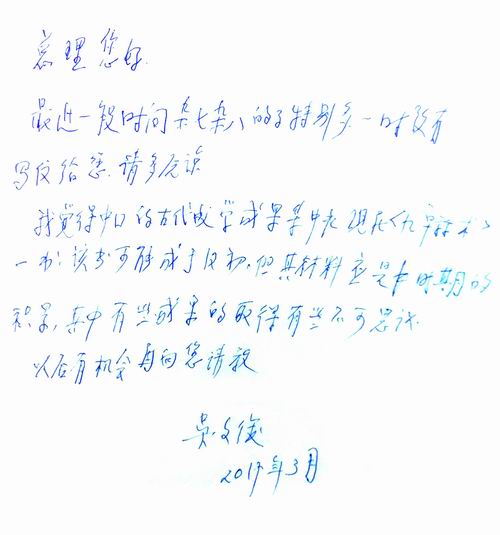 总理您好.
最近一段时间杂七杂八的事特别多.一时没有
写信给您.请多原谅
我觉得中国的古代数学成果集中表现在《九章算术》
一书:该书可能成于汉初.但其材料应是长时期的
积累,其中有些成果的取得有些不可思议.
以后有机会再向您请教
吴文俊
2017年3月